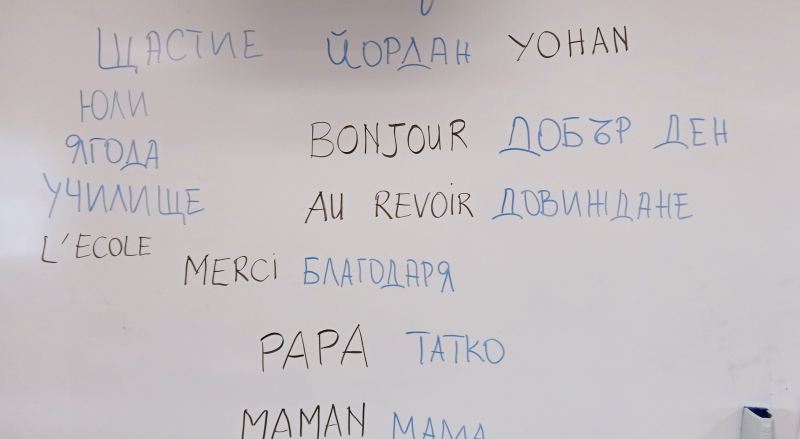 ЩАСТИЕ ЙОРДАН YOHAN
ЮЛИ
BONJOUR ДОБЪР ДЕН
ЯГОДА
УЧИЛИЩЕ AU REVOIR ДОВИЖДАНЕ
L'ECOLE
MERCI БЛАГОДАРЯ
PAPA ТАТКО
MAMAN МАМА